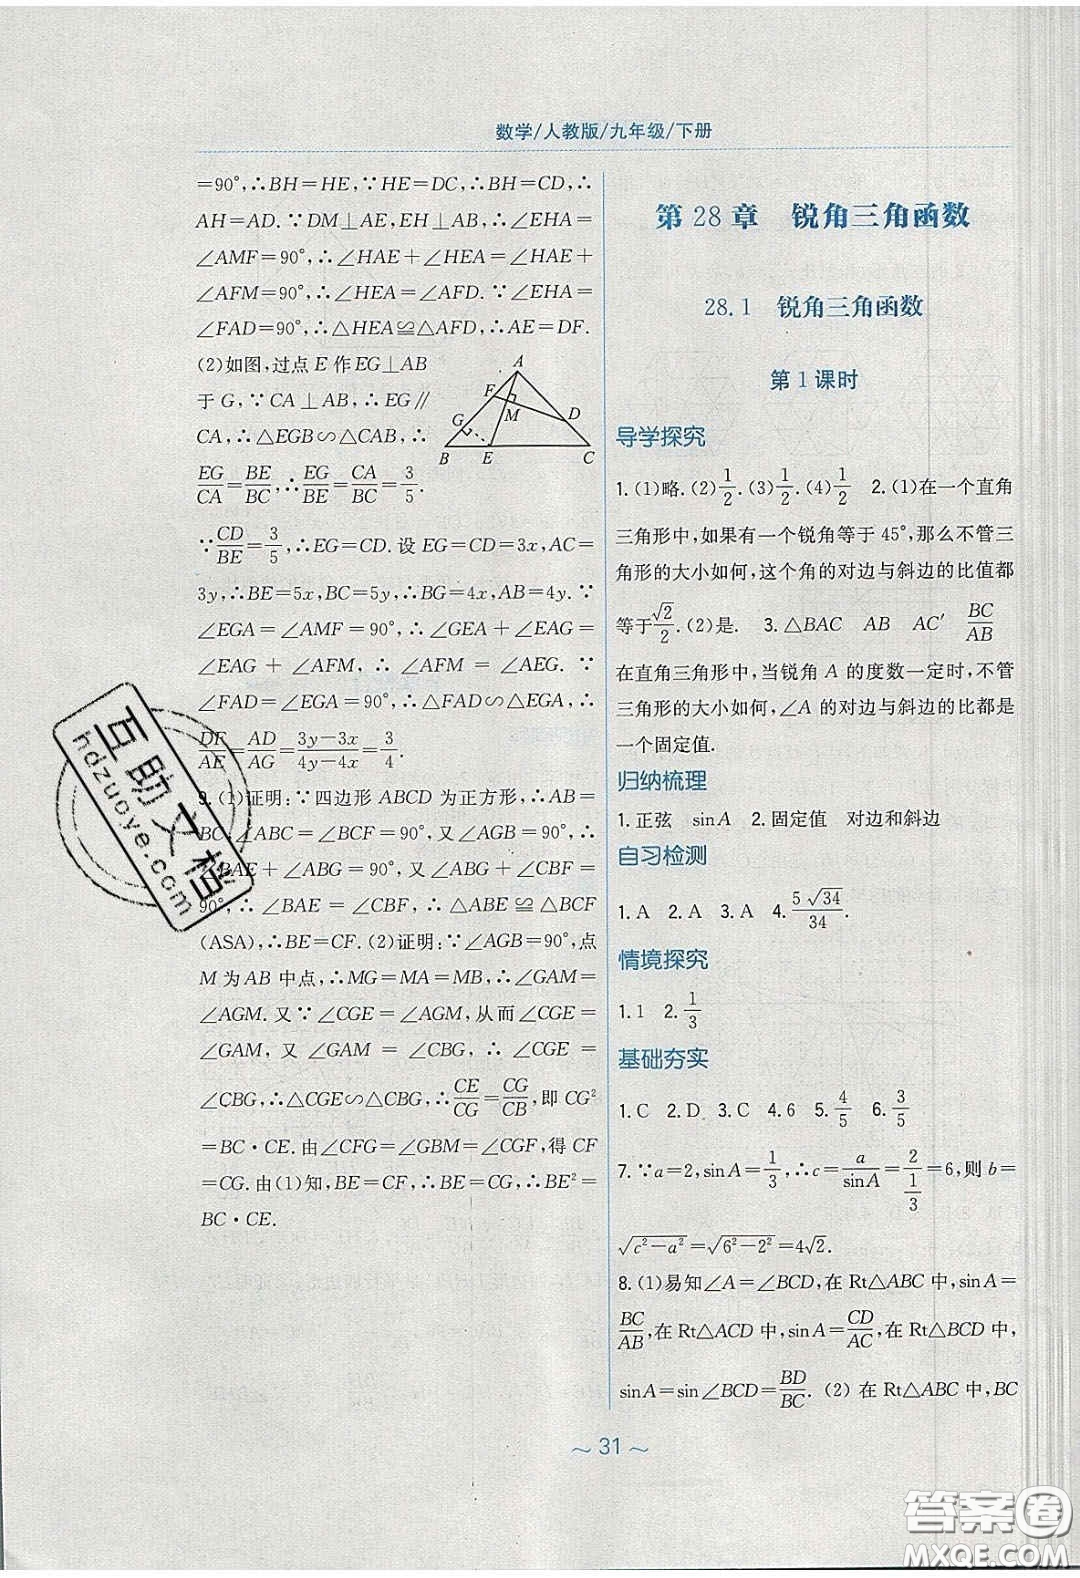 数学/人教版/九年级/下册
=90°,∴BH=HE,∵HE=DC,∴BH=CD,∴
AH=AD.∵DM⊥AE,EH⊥AB,∴∠EHA=
∠AMF=90°,∴∠HAE+∠HEA=∠HAE+
∠AFM=90°,∴∠HEA=∠AFD.∵∠EHA=
∠FAD=90°,∴△HEA≌△AFD,∴AE=DF.
(2)如图,过点E作EG⊥AB
于G,∵CA⊥AB,∴EG∥
CA,∴△EGB∽△CAB,∴
EG/CA=BE/BC,∴EG/BE=CA/BC=3/5.
A
F
M
D
G
B
E
C
∵CD/BE=3/5,∴EG=CD.设EG=CD=3x,AC=
3y,∴BE=5x,BC=5y,∴BG=4x,AB=4y.∵
∠EGA=∠AMF=90°,∴∠GEA+∠EAG=
∠EAG+∠AFM,∴∠AFM=∠AEG.∵
∠FAD=∠EGA=90°,∴△FAD∽△EGA,∴
DF/AE=AD/AG=(3y-3x)/(4y-4x)=3/4.
9.(1)证明:∵四边形ABCD为正方形,∴AB=
BC,∠ABC=∠BCF=90°,又∠AGB=90°,∴
∠BAE+∠ABG=90°,又∠ABG+∠CBF=
90°,∴∠BAE=∠CBF,∴△ABE≌△BCF
(ASA),∴BE=CF.(2)证明:∵∠AGB=90°,点
M为AB中点,∴MG=MA=MB,∴∠GAM=
∠AGM.又∵∠CGE=∠AGM,从而∠CGE=
∠GAM,又∠GAM=∠CBG,∴∠CGE=
∠CBG,∴△CGE∽△CBG,∴CE/CG=CG/CB,即CG²
=BC·CE.由∠CFG=∠GBM=∠CGF,得CF
=CG.由(1)知,BE=CF,∴BE=CG,∴BE²=
BC·CE.
第28章 锐角三角函数
28.1 锐角三角函数
第1课时
导学探究
1.(1)略.(2)1/2.(3)1/2.(4)1/2 2.(1)在一个直角
三角形中,如果有一个锐角等于45°,那么不管三
角形的大小如何,这个角的对边与斜边的比值都
等于√2/2.(2)是. 3.△BAC AB AC′ BC/AB
在直角三角形中,当锐角A的度数一定时,不管
三角形的大小如何,∠A的对边与斜边的比都是
一个固定值.
归纳梳理
1.正弦 sinA 2.固定值 对边和斜边
自习检测
1.A 2.A 3.A 4.5√34/34.
情境探究
1.1 2.1/3
基础夯实
1.C 2.D 3.C 4.6 5.4/5 6.3/5
7.∵a=2,sinA=1/3,∴c=a/sinA=2/(1/3)=6,则b=
√(c²-a²)=√(6²-2²)=4√2.
8.(1)易知∠A=∠BCD,在Rt△ABC中,sinA=
BC/AB,在Rt△ACD中,sinA=CD/AC,在Rt△BCD中,
sinA=sin∠BCD=BD/BC.(2)在Rt△ABC中,BC
~31~
互助文档
hdzuoye.com
答案圈
MXQE.COM